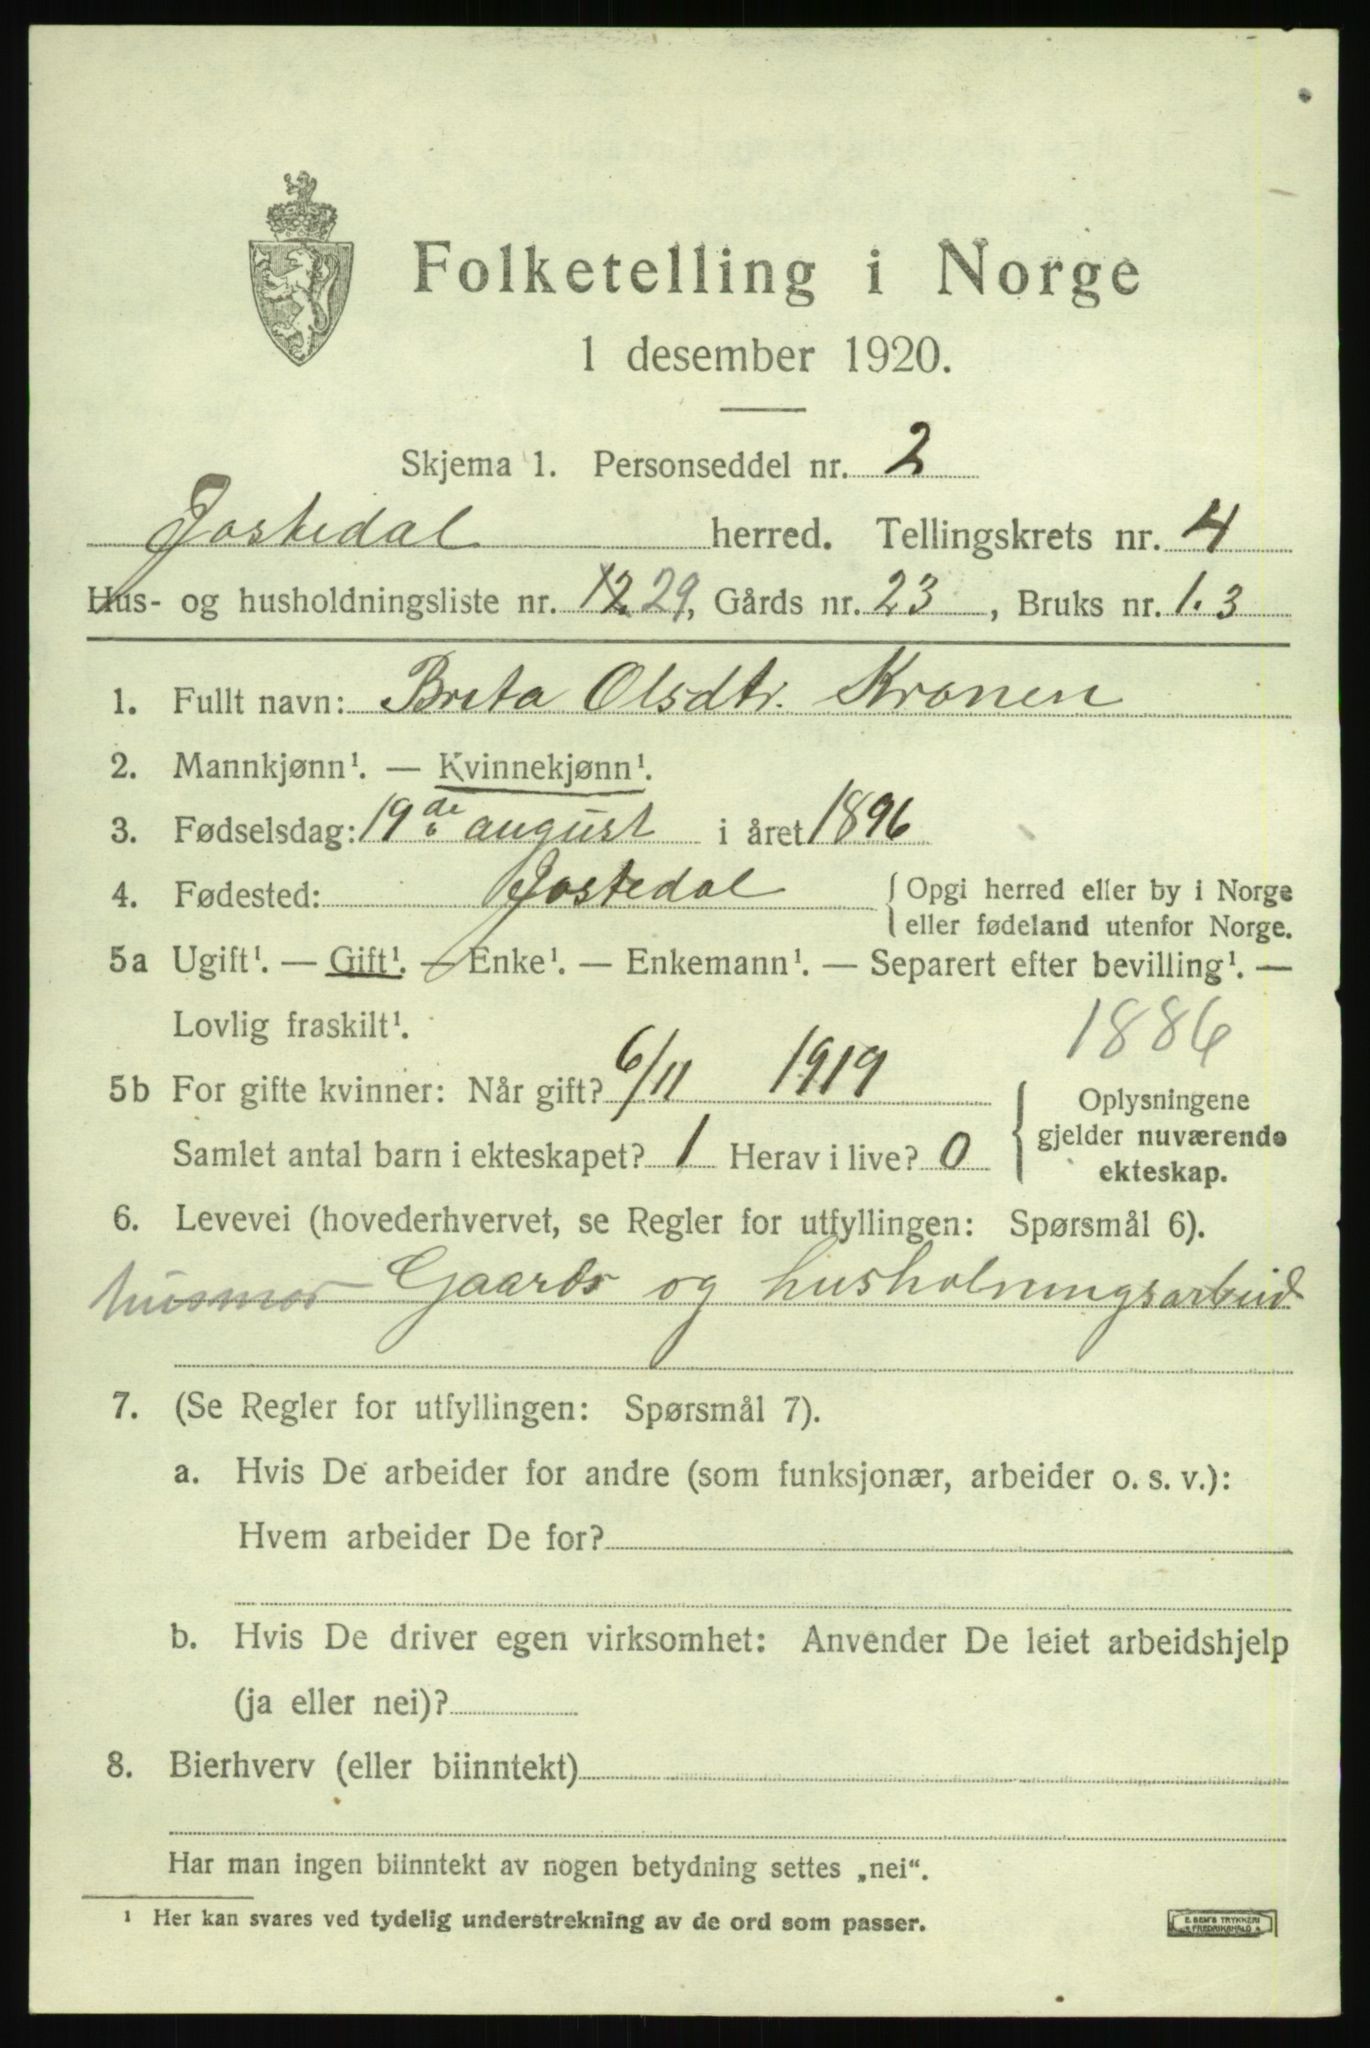 Folketelling i Norge
1 desember 1920.
Skjema 1. Personseddel nr. 2
Jostedal herred. Tellingskrets nr. 4
Hus- og husholdningsliste nr. 12 29, Gårds nr. 23, Bruks nr. 1.3
1. Fullt navn: Brita Olsdtr. Kronen
2. Mannkjønn¹. — Kvinnekjønn¹.
3. Fødselsdag: 19de august i året 1896
4. Fødested: Jostedal {Opgi herred eller by i Norge
eller fødeland utenfor Norge.
5a Ugift¹. — Gift¹. — Enke¹. — Enkemann¹. — Separert efter bevilling¹. —
Lovlig fraskilt¹.
1886
5b For gifte kvinner: Når gift? 6/11 1919
Samlet antal barn i ekteskapet? 1 Herav i live? 0
{Oplysningene
gjelder nuværende
ekteskap.
6. Levevei (hovederhvervet, se Regler for utfyllingen: Spørsmål 6).
husmor Gaards og husholningsarbeid
7. (Se Regler for utfyllingen: Spørsmål 7).
a. Hvis De arbeider for andre (som funksjonær, arbeider o. s. v.):
Hvem arbeider De for?
b. Hvis De driver egen virksomhet: Anvender De leiet arbeidshjelp
(ja eller nei)?
8. Bierhverv (eller biinntekt)
Har man ingen biinntekt av nogen betydning settes „nei“.
¹ Her kan svares ved tydelig understrekning av de ord som passer.
E. SEM'S TRYKKERI
FREDRIKSHALD